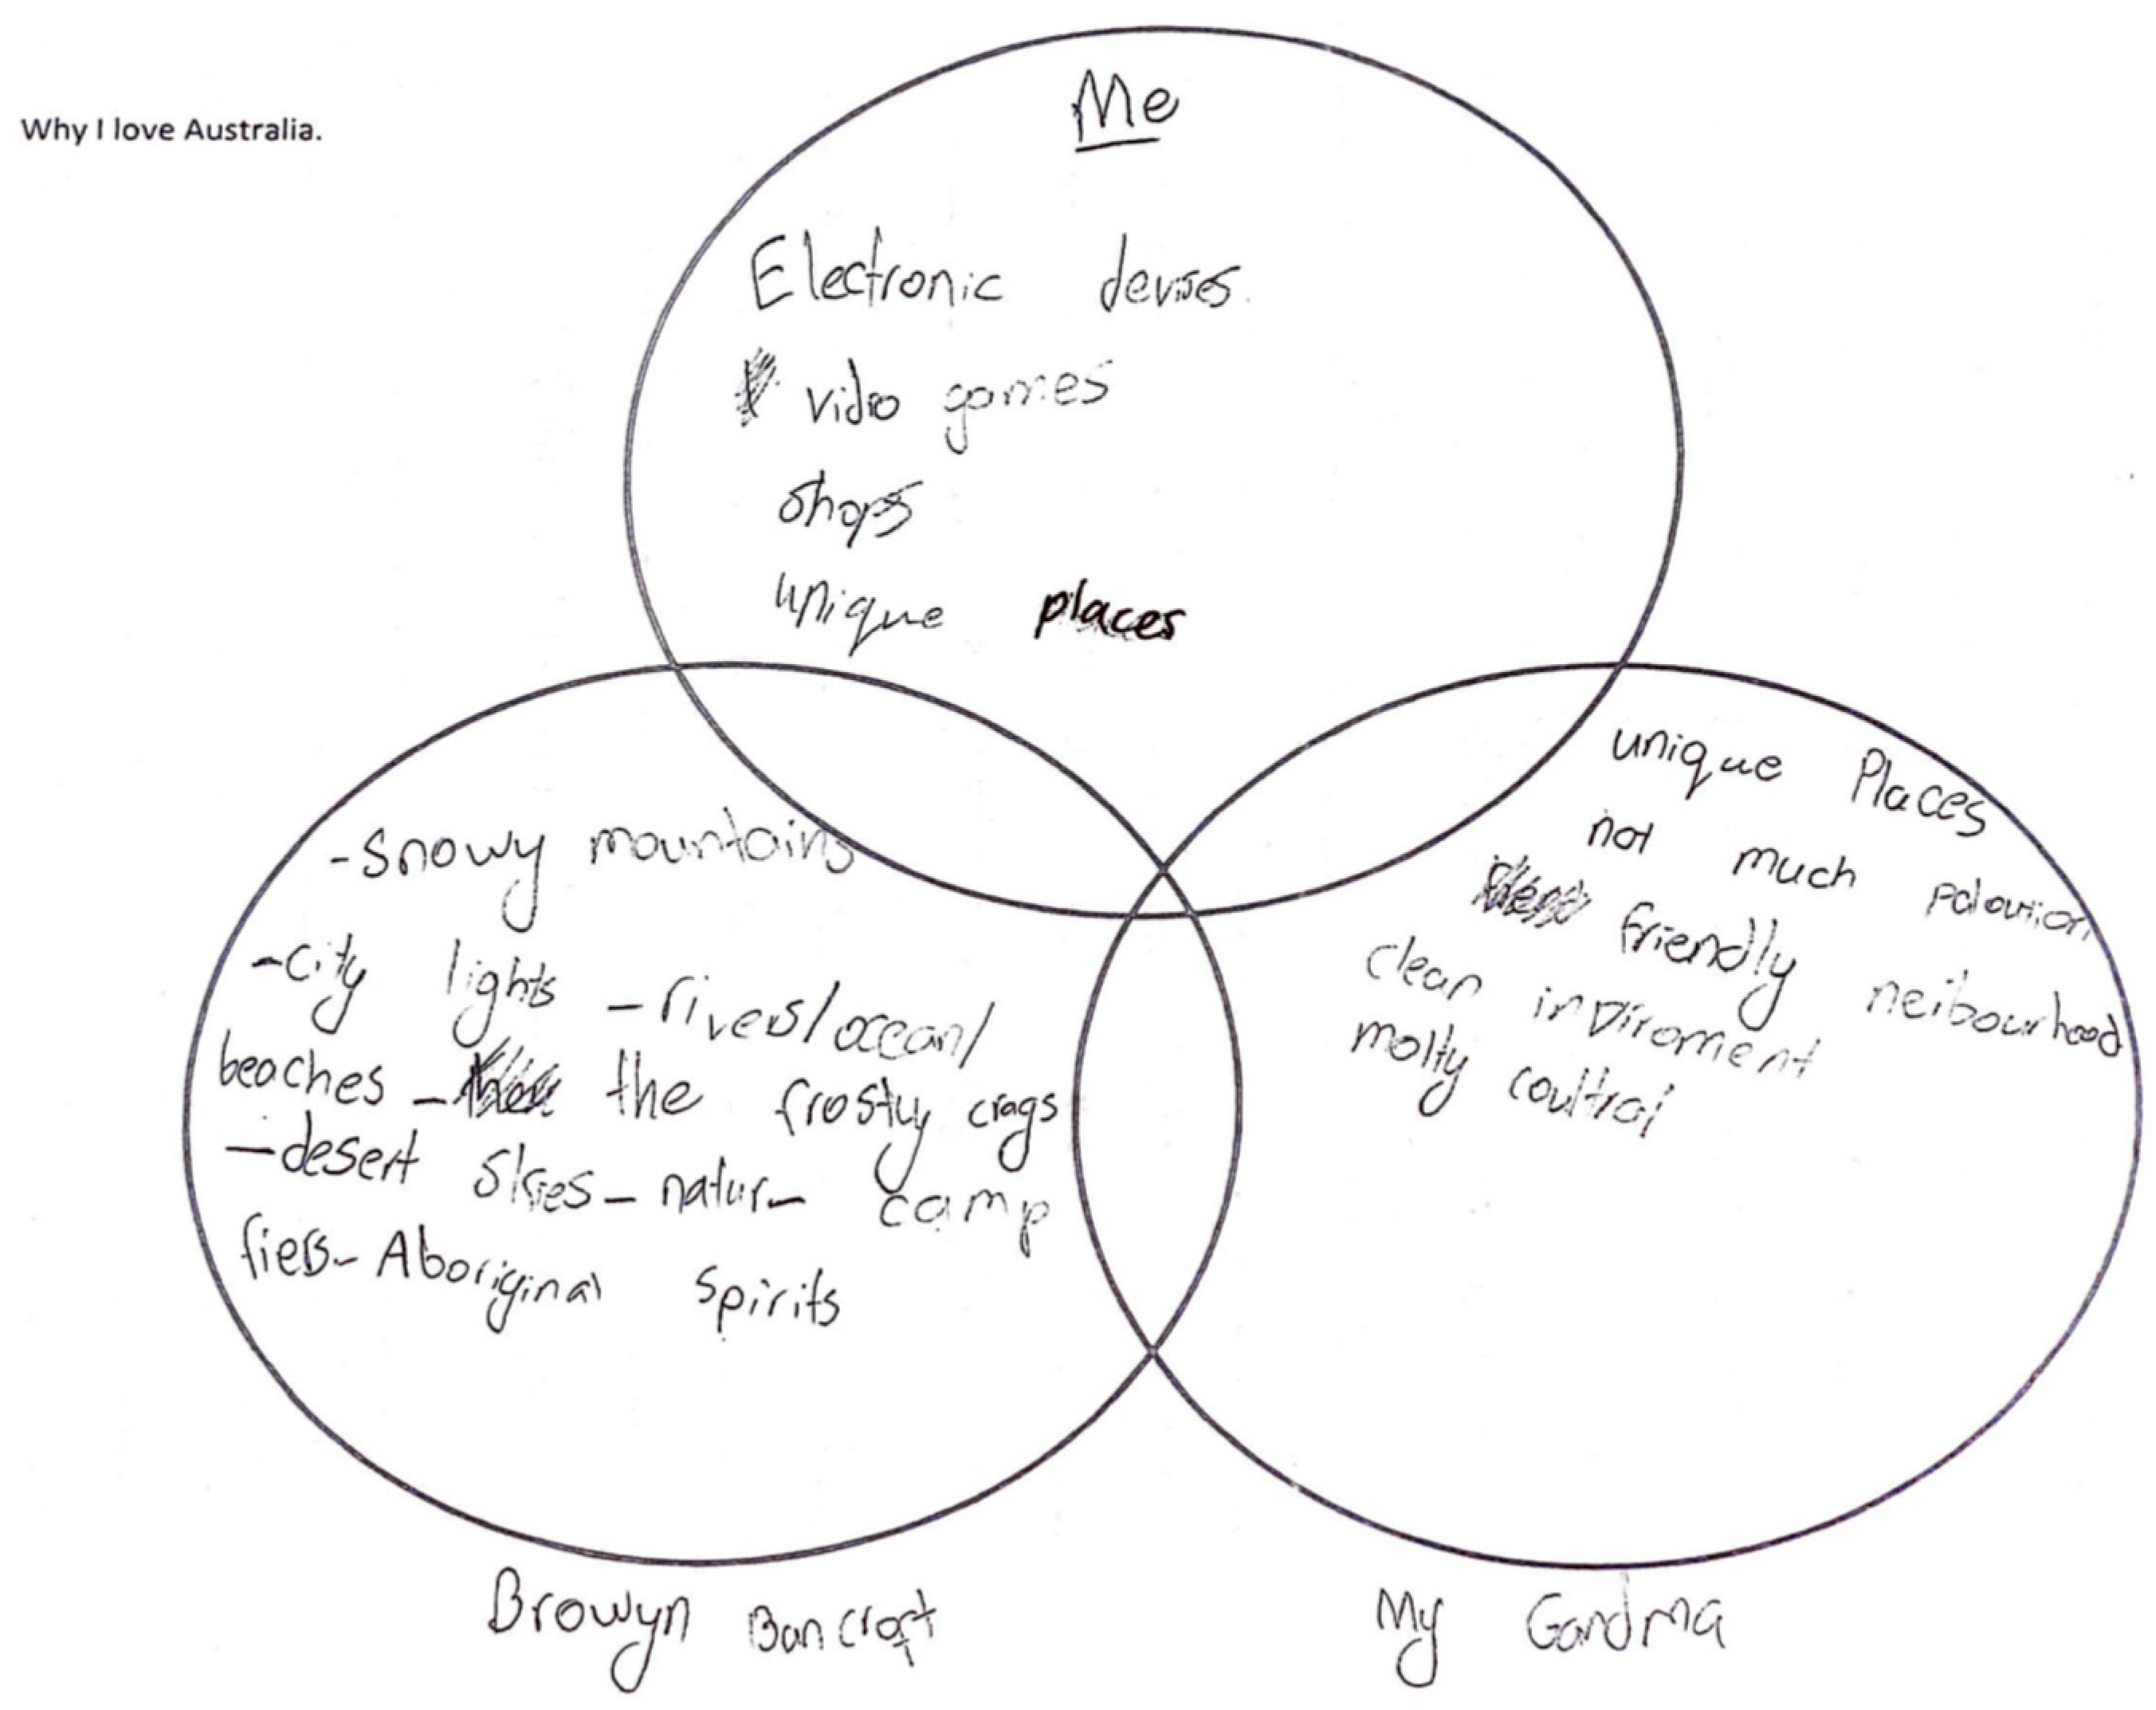 Why I love Australia.
Me
Electronic devises.
vidio games
shops
unique places
-snowy mountains
-city lights -rivers/ocean/
beaches - the frosty crags
-desert skies- natur- camp
fiers- Aboriginal spirits
Browyn Bancroft
unique Places
not much poloution
friendly neibourhood
clean inviroment
molty coultral
My Gandma